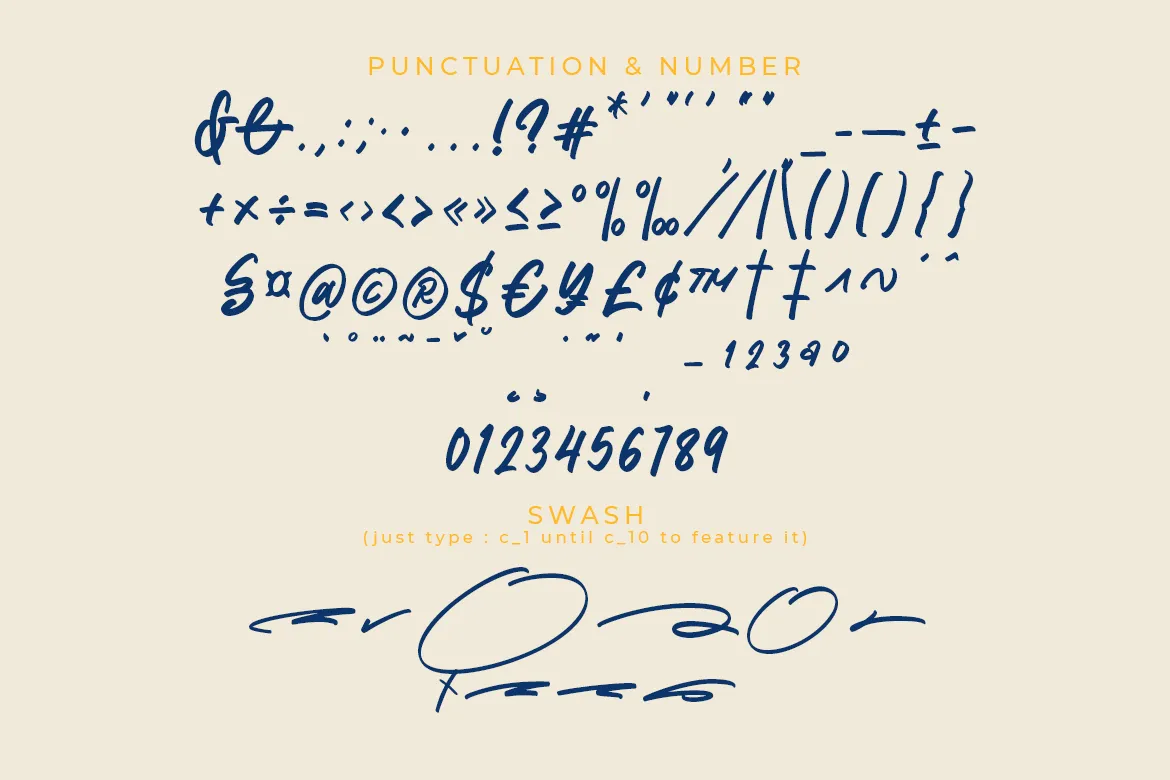 PUNCTUATION & NUMBER
&&.,:;·•...!?#*'"'' ""_-—±-
+×÷=‹›<>«»≤≥°%‰⁄//|\()(){}
§¤@©®$€¥£¢™†‡^~
_123ao
0123456789
SWASH
(just type : c_1 until c_10 to feature it)